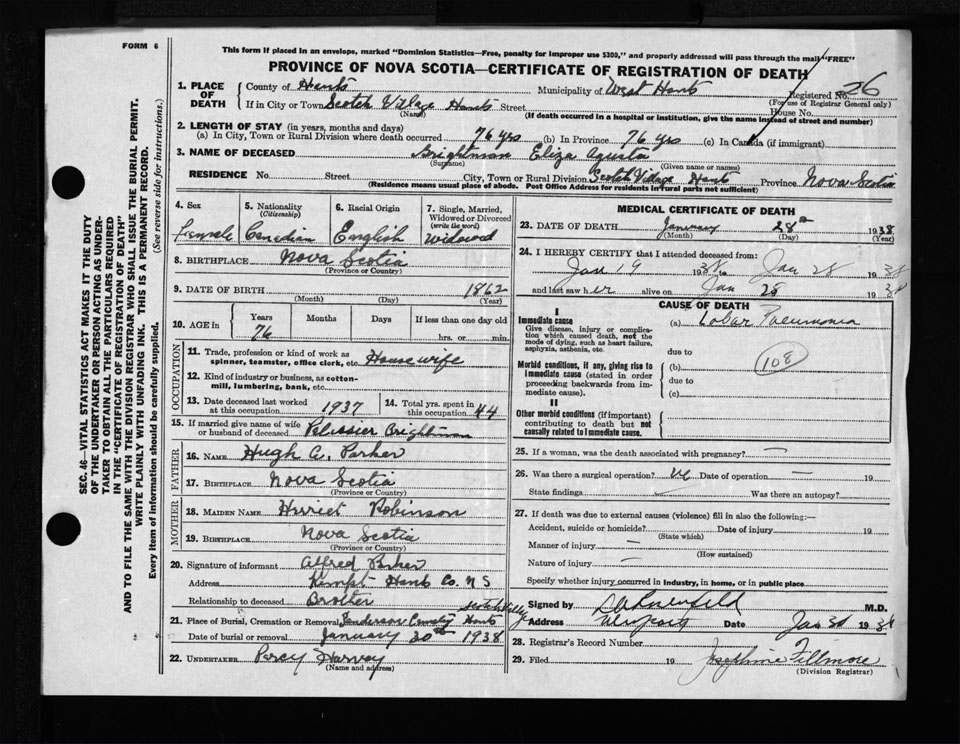 FORM 6
This form if placed in an envelope, marked "Dominion Statistics—Free, penalty for improper use $300," and properly addressed will pass through the mail "FREE"
PROVINCE OF NOVA SCOTIA—CERTIFICATE OF REGISTRATION OF DEATH
1. PLACE OF DEATH
County of Hants Municipality of West Hants Registered No. 26
(For use of Registrar General only)
If in City or Town Scotch Village Hants Street House No.
(Name) (If death occurred in a hospital or institution, give the name instead of street and number)
2. LENGTH OF STAY (in years, months and days)
(a) In City, Town or Rural Division where death occurred 76 yrs (b) In Province 76 yrs (c) In Canada (if immigrant)
3. NAME OF DECEASED Brightman Eliza Agusta
(Surname) (Given name or names)
RESIDENCE No. Street City, Town or Rural Division Scotch Village Hants Province Nova Scotia
(Residence means usual place of abode. Post Office Address for residents in rural parts not sufficient)
4. Sex
Female
5. Nationality (Citizenship)
Canadian
6. Racial Origin
English
7. Single, Married, Widowed or Divorced (write the word)
Widowed
8. BIRTHPLACE Nova Scotia
(Province or Country)
9. DATE OF BIRTH 1862
(Month) (Day) (Year)
10. AGE in Years Months Days If less than one day old
76 hrs. or min.
OCCUPATION
11. Trade, profession or kind of work as spinner, teamster, office clerk, etc. Housewife
12. Kind of industry or business, as cotton-mill, lumbering, bank, etc.
13. Date deceased last worked at this occupation 1937
14. Total yrs. spent in this occupation 44
15. If married give name of wife or husband of deceased Pelissier Brightman
FATHER
16. NAME Hugh C. Parker
17. BIRTHPLACE Nova Scotia
(Province or Country)
MOTHER
18. MAIDEN NAME Harriet Robinson
19. BIRTHPLACE Nova Scotia
(Province or Country)
20. Signature of informant Alfred Parker
Address Kempt Hants Co. N S
Relationship to deceased Brother
21. Place of Burial, Cremation or Removal Sanderson Cemetery Scotch Village Hants
Date of burial or removal January 30th 1938
22. UNDERTAKER Percy Harvey
(Name and Address)
MEDICAL CERTIFICATE OF DEATH
23. DATE OF DEATH January 28th 1938
(Month) (Day) (Year)
24. I HEREBY CERTIFY that I attended deceased from:
Jan 19 1938 to Jan 28 1938
and last saw her alive on Jan 28 1938
CAUSE OF DEATH
I
Immediate cause
Give disease, injury or complication which caused death, not the mode of dying, such as heart failure, asphyxia, asthenia, etc.
(a) Lobar Pneumonia
due to
Morbid conditions, if any, giving rise to immediate cause (stated in order proceeding backwards from immediate cause).
(b) 108
due to
(c)
II
Other morbid conditions (if important) contributing to death but not causally related to immediate cause.
25. If a woman, was the death associated with pregnancy? —
26. Was there a surgical operation? Date of operation —
State findings Was there an autopsy?
27. If death was due to external causes (violence) fill in also the following:—
Accident, suicide or homicide? Date of injury 19
(State which)
Manner of injury —
(How sustained)
Nature of injury —
Specify whether injury occurred in industry, in home, or in public place
Signed by M.D.
Address Newport Date Jan 30 1938
28. Registrar's Record Number
29. Filed 19 Josephine Fillmore
(Division Registrar)
SEC. 46—VITAL STATISTICS ACT MAKES IT THE DUTY
OF THE UNDERTAKER OR PERSON ACTING AS UNDERTAKER TO OBTAIN ALL THE PARTICULARS REQUIRED
IN THE "CERTIFICATE OF REGISTRATION OF DEATH"
AND TO FILE THE SAME WITH THE DIVISION REGISTRAR WHO SHALL ISSUE THE BURIAL PERMIT.
WRITE PLAINLY WITH UNFADING INK. THIS IS A PERMANENT RECORD.
Every item of Information should be carefully supplied. (See reverse side for instructions.)